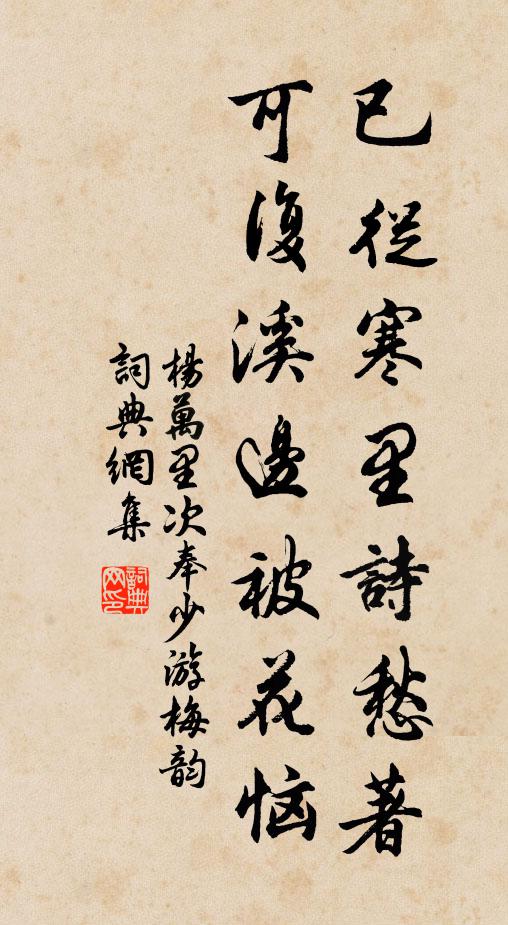 已從寒里詩愁著
可復溪邊被花恼
楊萬里次奉少游梅韵
詞典網集
詞典网印